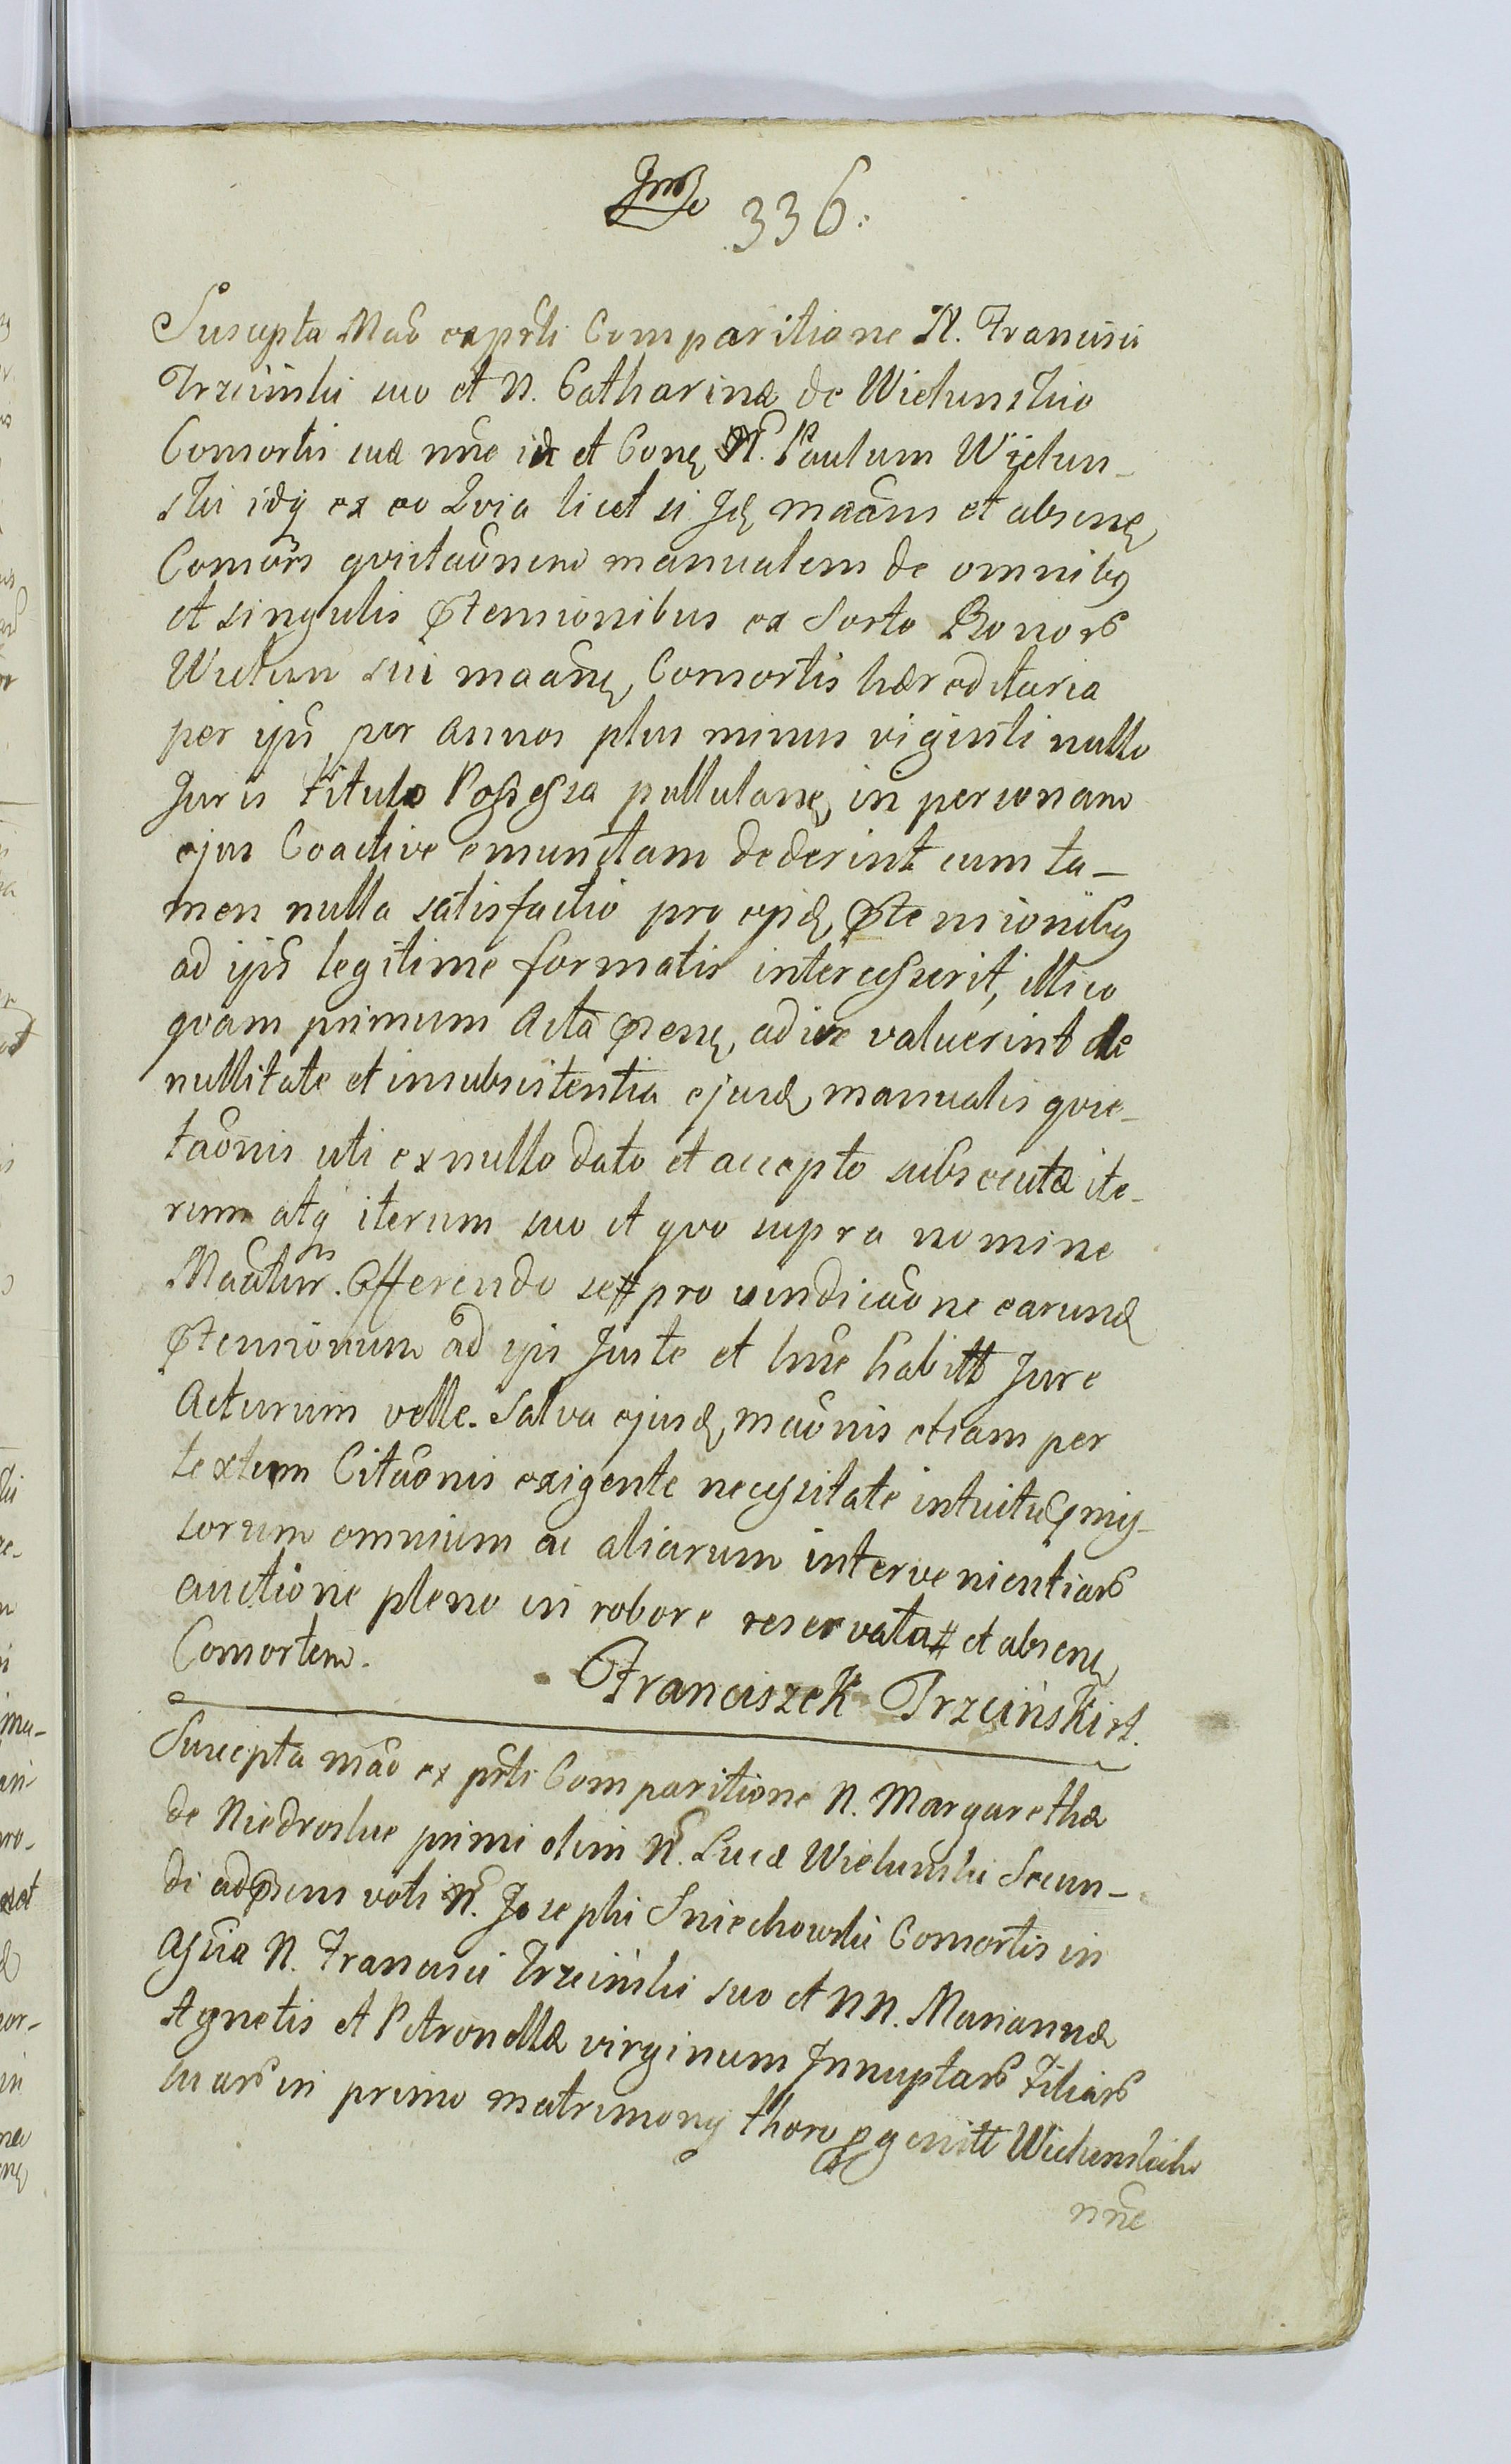 336.
Suscepta Mãõ ex prti Comparitione N. Francisci
Trzciński suo et N. Catharinæ de Wielunskie
Consortis suæ nñe id et Conę N. Paulum Wielun-
ski idq ex eo Qvia licet si Jdę maãns et absenę
Consors qvietaõnem manualem de omnibq
et singulis prætensionibus ex Sorte Bonorũ
Wielun sui maãnę Consortis hæreditaria
per ipñ per annos plus minus viginti nullo
Juris titulo Possessa pullulanę in personam
ejus Coactive emunctam dederint cum ta-
men nulla satisfactio pro ejsdę prætensionibq
ad ipñ legitime formatis intercesserit, illico
qvam primum Acta præsenę adire valuerint de
nullitate et insubsistentia ejusdę manualis qvie-
taõnis uti ex nullo dato et accepto subsecutæ ite-
rum atq iterum suo et qvo supra nomine
Maãtur. Offerendo se # pro vindicaõne earundę
prætensionum ad ipñ Juste et hñe habitt Jure
Acturum velle. Salva ejusdę maõnis etiam per
textum Citaõnis exigente necessitate intuitu præmis-
sorum omnium ac aliarum intervenientiarũ
auctione pleno in robore reservata # et absenę
Consortem.
Franciszek Trzciński
Suscepta mãõ ex prti Comparitione N. Margarethæ
de Niedroskie primi olim N. Lucæ Wieluński Secun-
di ad præsens voti N. Josephi Sniechowski Consortis in
Assñia N. Francisci Trzciński suo et NN. Mariannæ
Agnetis et Petronellæ virginum Innuptarũ Filiarũ
suarũ in primo matrimonij thoro progenitt Wielunskich
nñe